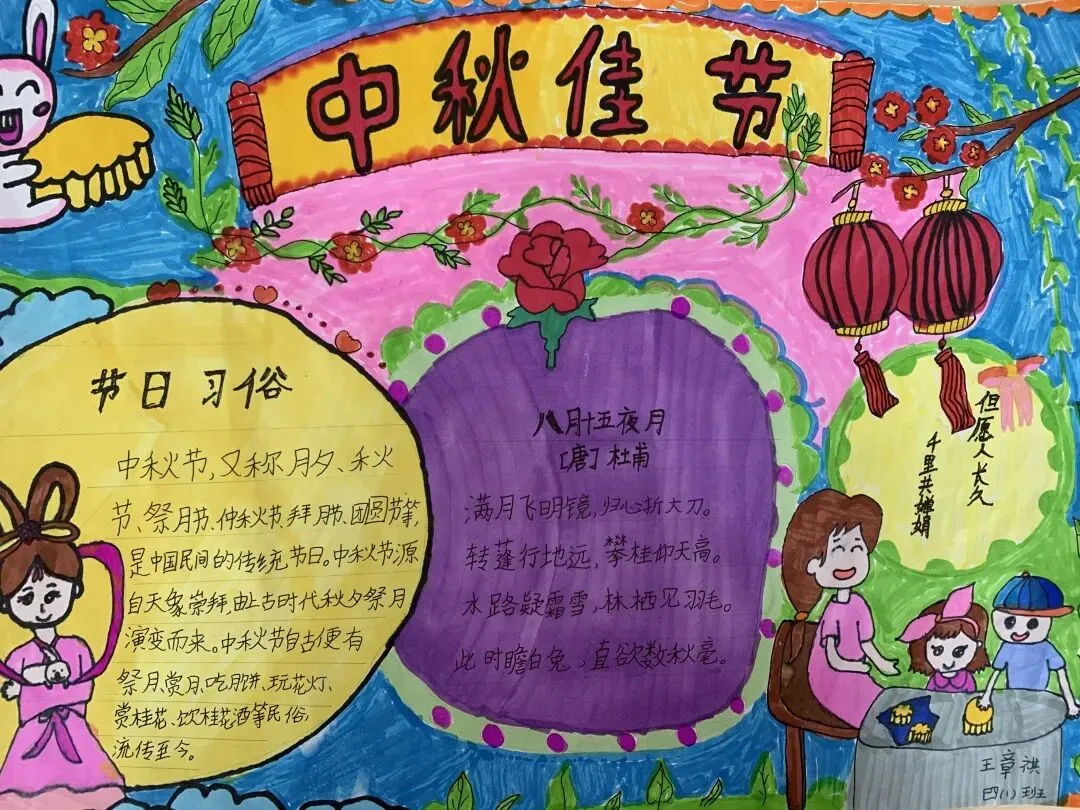 中秋佳节
节日习俗
中秋节,又称月夕、秋
节、祭月节、仲秋节、拜月节、团圆节等,
是中国民间的传统节日。中秋节源
自天象崇拜,由上古时代秋夕祭月
演变而来。中秋节自古便有
祭月、赏月、吃月饼、玩花灯、
赏桂花、饮桂花酒等民俗,
流传至今。
八月十五夜月
[唐]杜甫
满月飞明镜,归心折大刀。
转蓬行地远,攀桂仰天高。
水路疑霜雪,林栖见羽毛。
此时瞻白兔,直欲数秋毫。
但愿人长久
千里共婵娟
王章祺
四(1)班